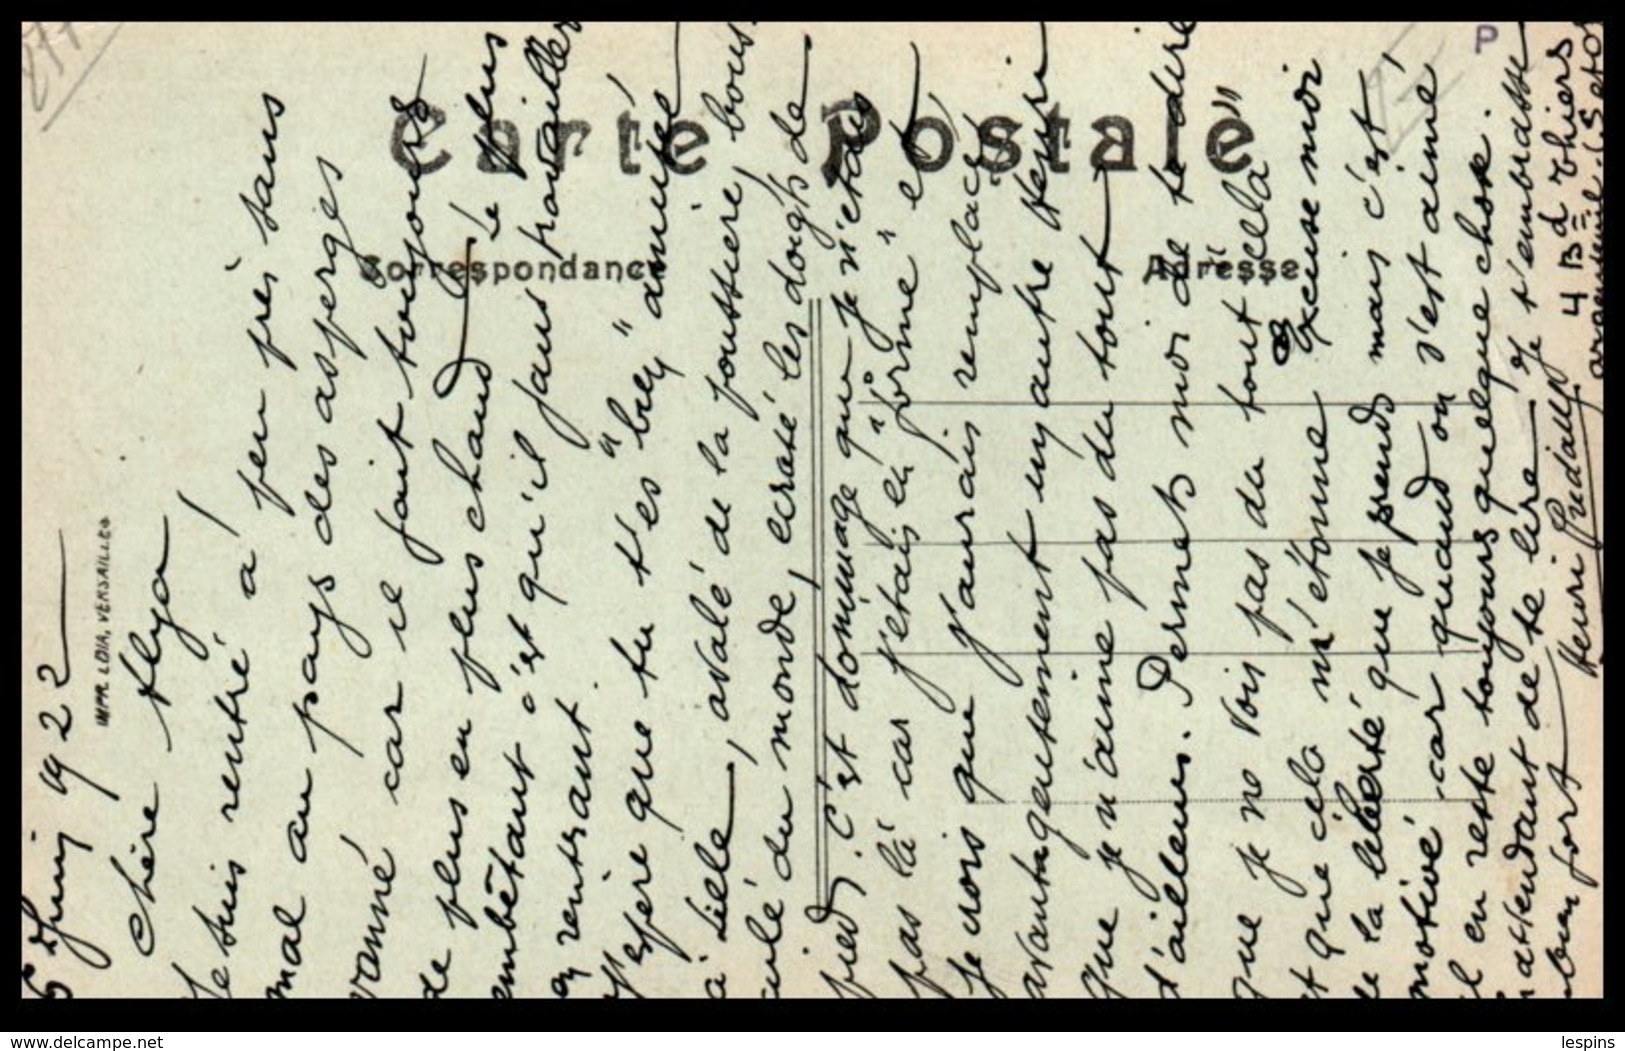 6 Juin 1922
Chère Alya
Je suis rentré à peu près sans
mal au pays des asperges
vanné car il fait toujours
de plus en plus chaud ! Le plus
embêtant c'est qu'il faut travailler
en rentrant
J'espère que tu t'es "bien" amusée
à Lille, avalé de la poussière, bous
culé du monde, écrasé les doigts de
pied. C'est dommage que je n'étais
pas là car j'étais en "forme" et
je crois que j'aurais remplacé
avantageusement un autre Henri
que je n'aime pas du tout
d'ailleurs. Permets moi de te dire
que je ne vois pas du tout "cella"
et que cela m'étonne excuse moi
de la liberté que je prends mais c'est
motivé car quand on s'est aimé
il en reste toujours quelque chose.
En attendant de te lire je t'embrasse
bien fort
Henri
4 Bd Thiers
Argenteuil (S et O)
Carte Postale
Correspondance
Adresse
IMPR. LOIA, VERSAILLES
P
lespins
https://www.delcampe.net